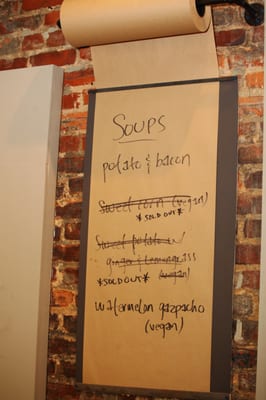 Soups
potato & bacon
Sweet corn (vegan)
*SOLD OUT*
Sweet potato w/
ginger & lemongrass
*SOLD OUT* (vegan)
watermelon gazpacho
(vegan)